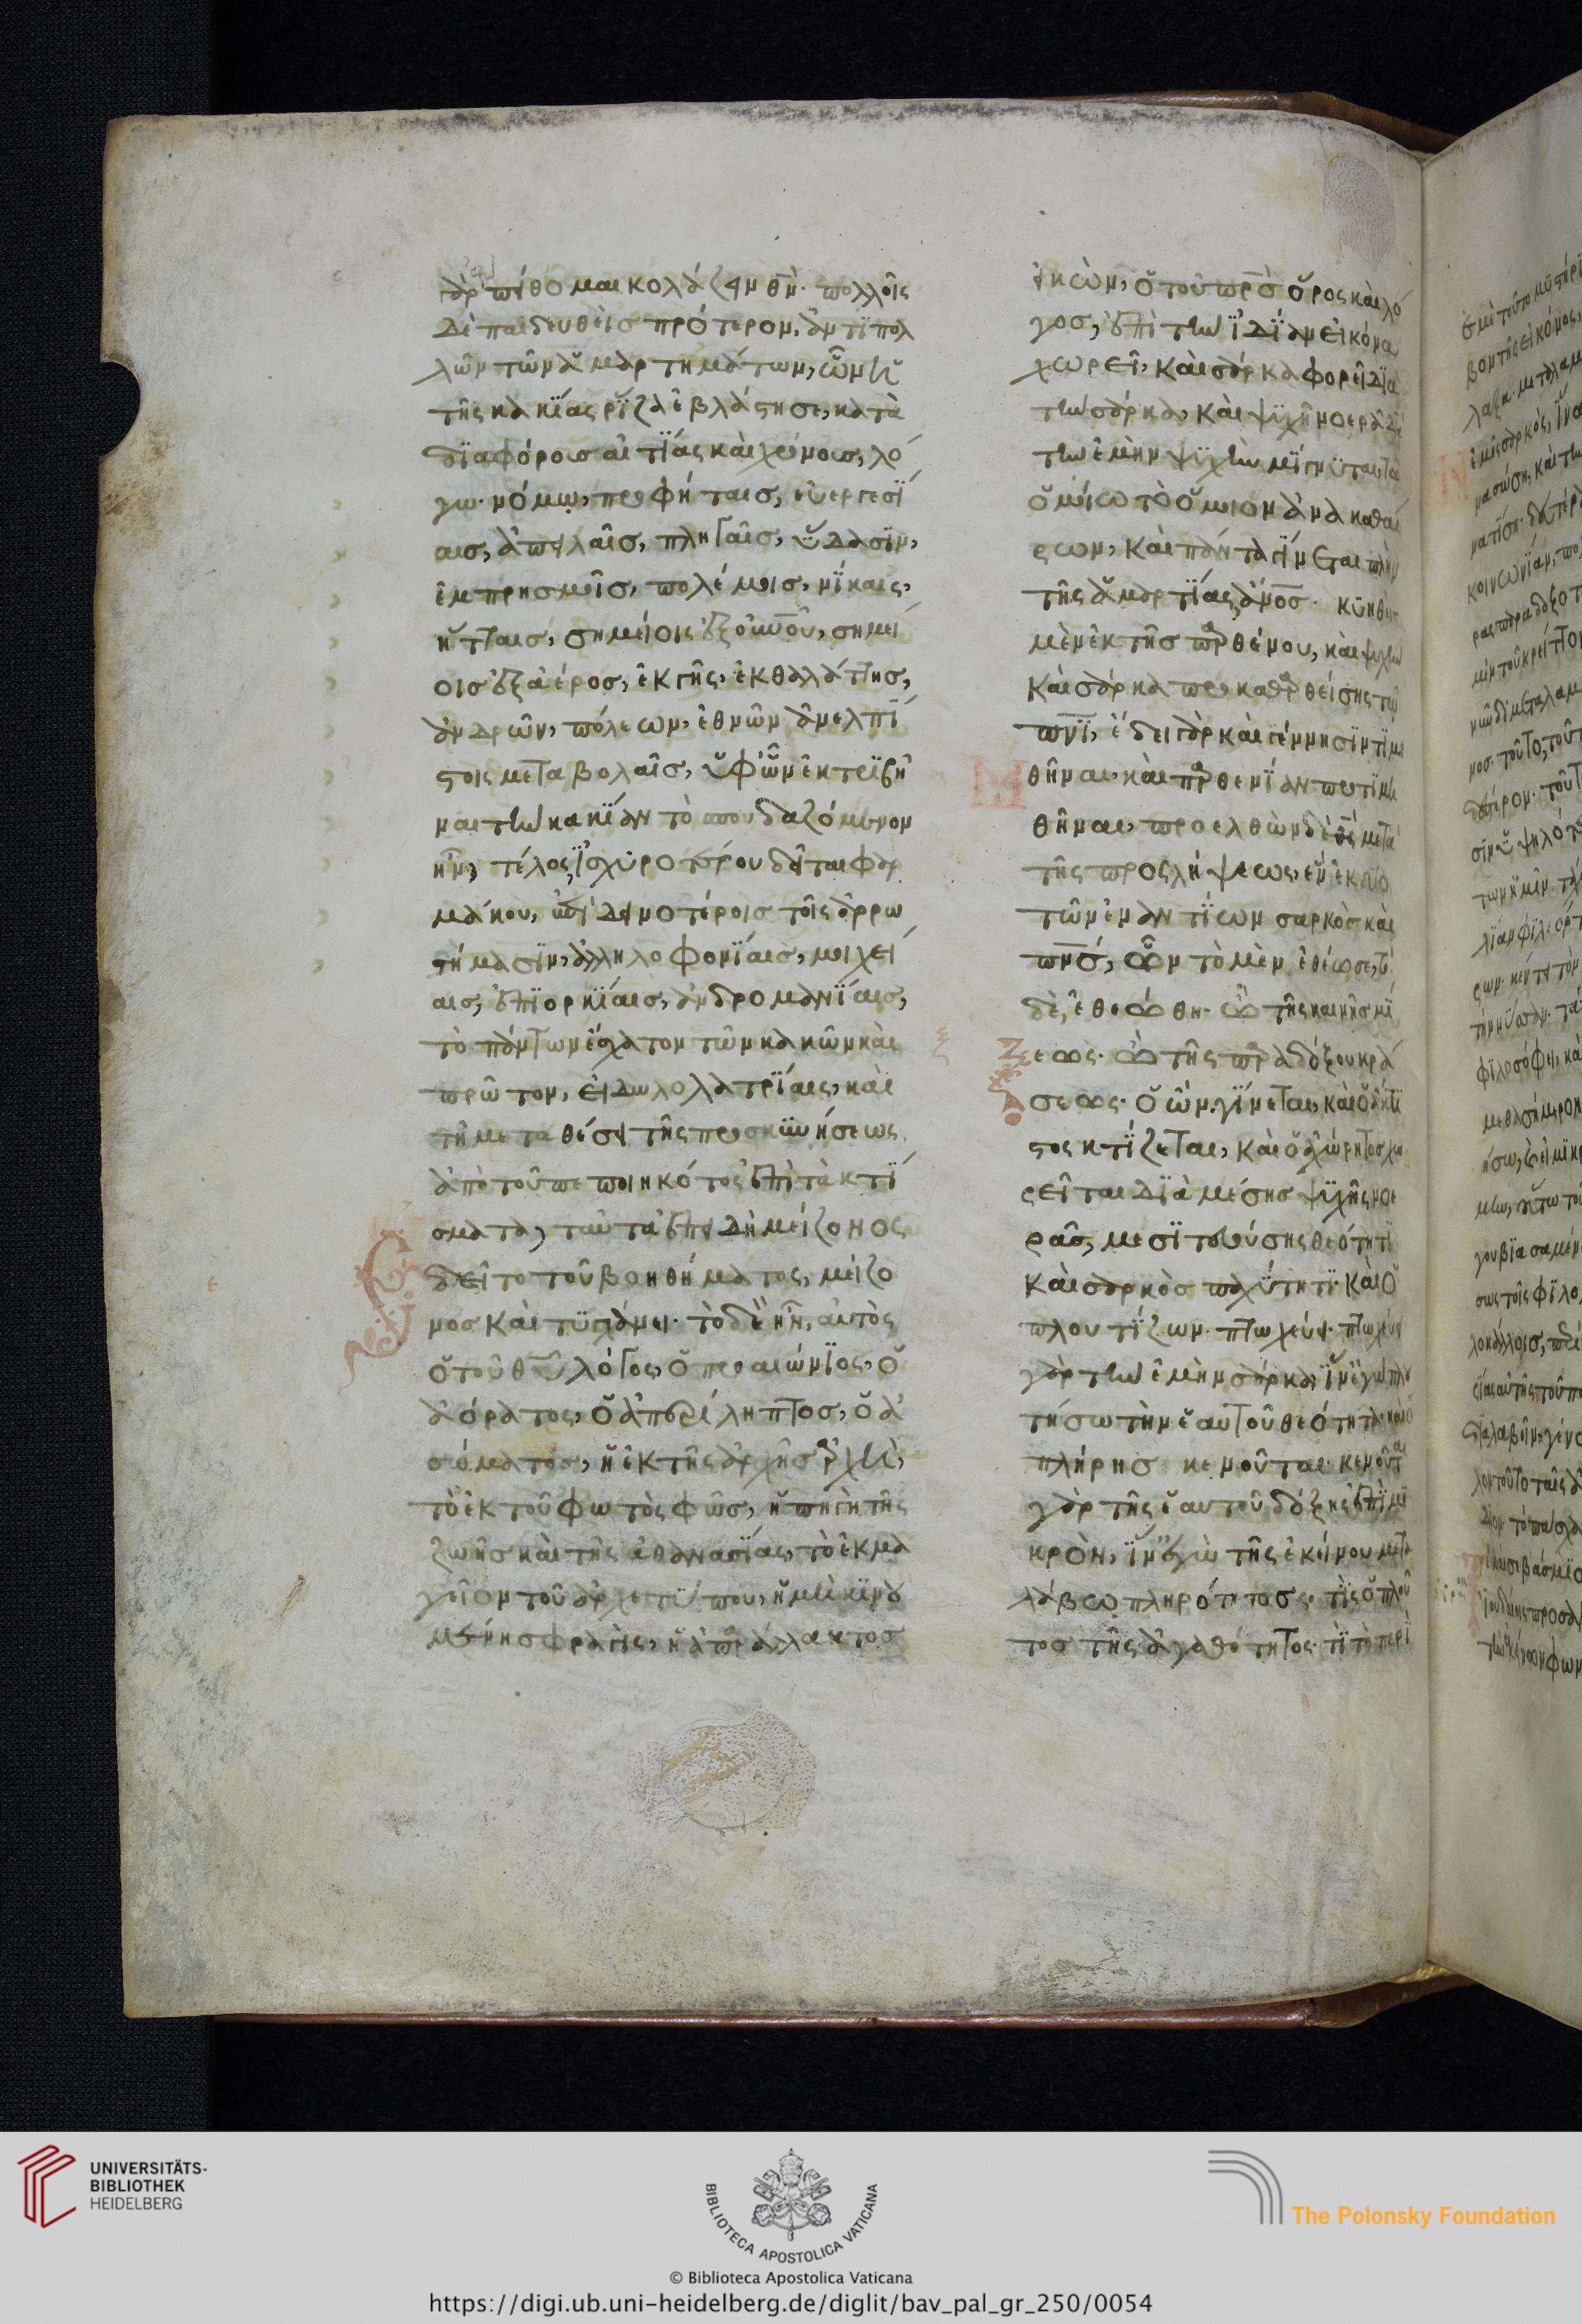 γὰρ πείθομαι κολάζειν θν̅· πολλοῖς
δὲ παιδευθεὶς πρότερον, ἀντὶ πολ
λῶν τῶν ἁμαρτημάτων, ὧν ἡ
τῆς κακίας ρίζα ἐβλάστησε, κατὰ
διαφόρους αἰτίας καὶ χρόνους, λό
γω· νόμω, προφήταις, εὐεργεσί
αις, ἀπειλαῖς, πληγαῖς, ὕδασιν,
ἐμπρησμοῖς, πολέμοις, νίκαις,
ἥτταις, σημείοις ἐξ οὐνοῦ, σημεί
οις ἐξ ἀέρος, ἐκ γῆς, ἐκ θαλάττης,
ἀνδρῶν, πόλεων, ἐθνῶν ἀνελπί
στοις μεταβολαῖς, ὑφ' ὧν ἐκτριβῆ
ναι τὴν κακίαν τὸ σπουδαζόμενον
ἦν, τέλος ἰσχυροτέρου δεῖται φαρ
μάκου, ἐπὶ δεινοτέροις τοῖς ἀρρω
στήμασιν, ἀλληλοφονίαις, μοιχεί
αις, ἐπιορκίαις, ἀνδρομανίαις,
τὸ πάντων ἔσχατον τῶν κακῶν καὶ
πρῶτον, εἰδωλολατρίαις, καὶ
τῆ μεταθέσει τῆς προσκυνήσεως
ἀπὸ τοῦ πεποιηκότος ἐπὶ τὰ κτί
σματα, ταῦτα ἐπειδὴ μείζονος
ἐδεῖτο τοῦ βοηθήματος, μείζο
νος καὶ τυγχάνει· τὸ δὲ ἦν, αὐτὸς
ὁ τοῦ θυ̅ λόγος, ὁ προαιώνιος, ὁ
ἀόρατος, ὁ ἀπερίληπτος, ὁ ἀ
σώματος, ἡ ἐκ τῆς ἀρχῆς ἀρχὴ,
τὸ ἐκ τοῦ φωτὸς φῶς, ἡ πηγὴ τῆς
ζωῆς καὶ τῆς ἀθανασίας, τὸ ἐκμα
γεῖον τοῦ ἀρχετύπου, ἡ μὴ κινου
μένη σφραγὶς, ἡ ἀπαράλλακτος
εἰκὼν, ὁ τοῦ πρσ̅ ὅρος καὶ λό
γος, ἐπὶ τὴν ἰδίαν εἰκόνα
χωρεῖ, καὶ σάρκα φορεῖ διὰ
τὴν σάρκα, καὶ ψυχῆ νοερᾶ διὰ
τὴν ἐμὴν ψυχὴν μίγνυται, τῶ
ὁμοίω τὸ ὅμοιον ἀνακαθαί
ρων, καὶ πάντα γίνεται πλὴν
τῆς ἁμαρτίας, ἄνος̅· κυηθεὶς
μὲν ἐκ τῆς παρθένου, καὶ ψυχὴν
καὶ σάρκα προκαθαρθείσης τῶ
πνι̅, ἔδει γὰρ καὶ γέννησιν τιμη
θῆναι, καὶ παρθενίαν προτιμη
θῆναι, προελθὼν δὲ θς̅ μετὰ
τῆς προσλήψεως, ἓν ἐκ δύο
τῶν ἐναντίων σαρκὸς καὶ
πνσ̅, ὧν τὸ μὲν ἐθέωσε, τὸ
δὲ, ἐθεώθη· ὢ τῆς καινῆς μί
ξεως· ὢ τῆς παραδόξου κρά
σεως· ὁ ὢν, γίνεται, καὶ ὁ ἄκτι
στος κτίζεται, καὶ ὁ ἀχώρητος χω
ρεῖται διὰ μέσης ψυχῆς νοε
ρᾶς, μεσιτευούσης θεότητι
καὶ σαρκὸς παχύτητι· καὶ ὁ
πλουτίζων, πτωχεύει· πτωχεύει
γὰρ τὴν ἐμὴν σάρκα, ἵν' ἐγὼ πλου
τήσω τὴν ἑαυτοῦ θεότητα· καὶ ὁ
πλήρης κενοῦται· κενοῦται
γὰρ τῆς ἑαυτοῦ δόξης ἐπὶ μι
κρὸν, ἵν' ἐγὼ τῆς ἐκείνου μετα
λάβω πληρότητος· τίς ὁ πλοῦ
τος τῆς ἀγαθότητος· τί τὸ περὶ
UNIVERSITÄTS-
BIBLIOTHEK
HEIDELBERG
BIBLIOTECA APOSTOLICA VATICANA
The Polonsky Foundation
© Biblioteca Apostolica Vaticana
https://digi.ub.uni-heidelberg.de/diglit/bav_pal_gr_250/0054